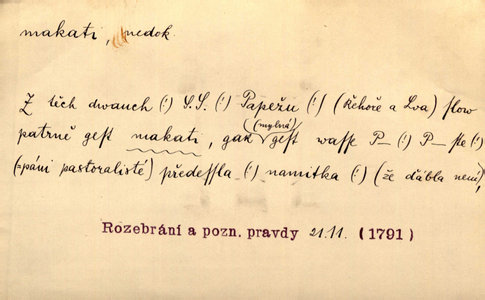 makati, nedok.
Z těch dwauch (:) S.S. (:) Papežu (:) (Řehoře a Lva) slow
(mylná)
patrně gest makati, gak gest wasse P— (:) P—ste (:)
(=páni pastoralisté) předessla (:) namitka (:) (že ďábla není),
Rozebrání a pozn. pravdy 21.11. (1791)